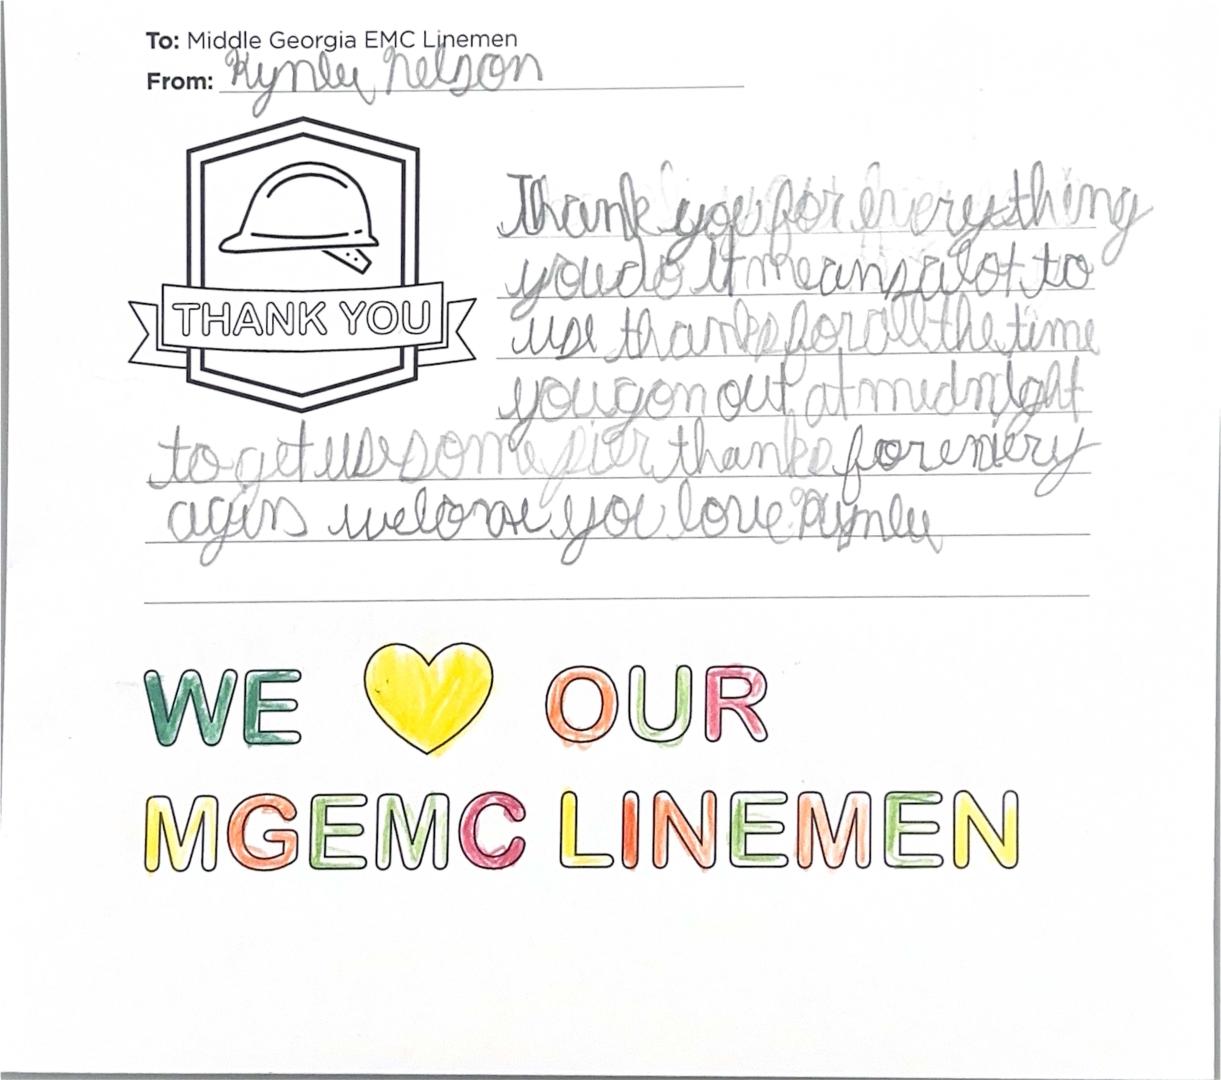 To: Middle Georgia EMC Linemen
From: Kynlee Nelson
THANK YOU
Thank you for everything
you do It means a lot to
use thanks for all the time
you gon out at midnight
to get use some thanks for
agin welcome you love Kynlee
WE OUR
MGEMC LINEMEN